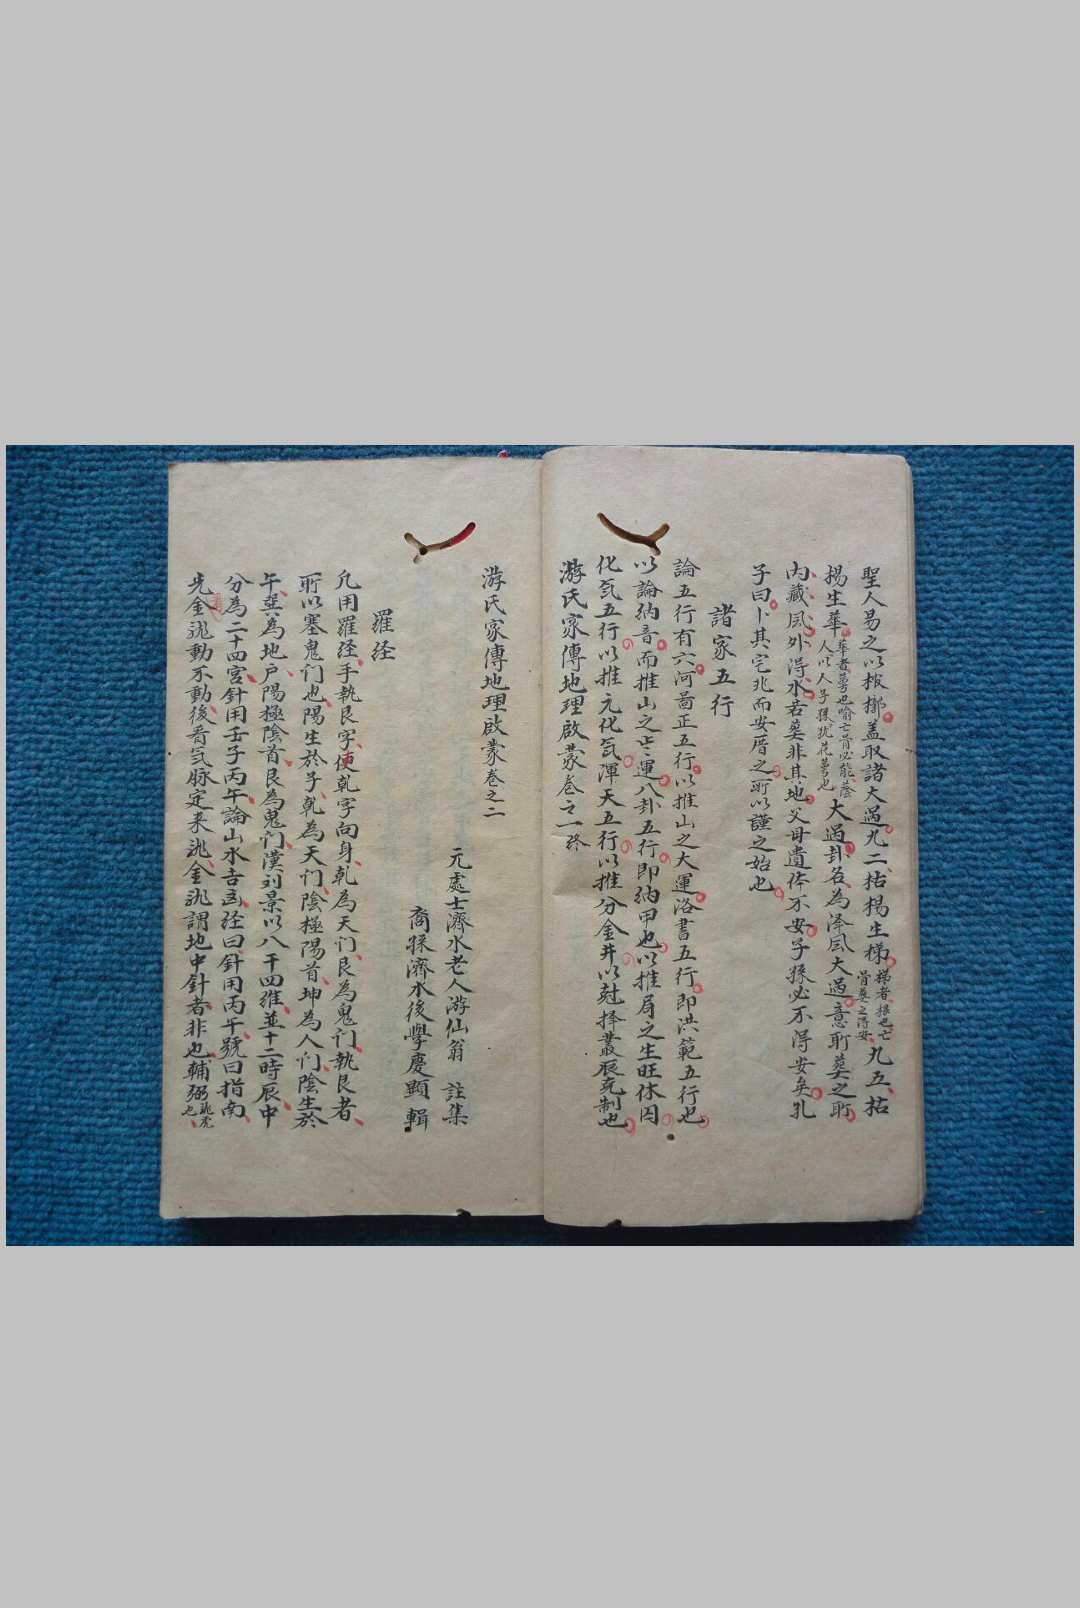 聖人易之以棺槨蓋取諸大過九二枯楊生梯梯者根也亡骨葬之得安九五枯
楊生華華者萼也喻亡骨必能蔭人以人子孫犹花萼也大過卦名為泽風大過意所葬之所
内藏風外得水若葬非其地父母遺体不安子孫必不得安矣孔
子曰卜其宅兆而安厝之所以謹之始也
諸家五行
論五行有六河啚正五行以推山之大運洛書五行即洪範五行也
以論納音而推山之運八卦五行即納甲也以推房之生旺休囚
化氣五行以推元化氣渾天五行以推分金井以尅择叢辰克制也
游氏家傳地理啟蒙卷之一終
游氏家傳地理啟蒙卷之二
元處士濟水老人游仙翁 註集
裔孫濟水後學慶顕 輯
羅经
凢用羅经手執艮字使乾字向身乾為天门艮為鬼门執艮者
所以塞鬼们也陽生於子乾為天们陰極陽首坤為人们陰生於
午巽為地户陽極陰首艮為鬼们漢刘景以八干四維並十二時辰中
分為二十四宮針用壬子丙午論山水吉凶经曰針用丙午號曰指南
先金洮動不動後看氣脉定来洮金洮謂地中針者非也輔弼